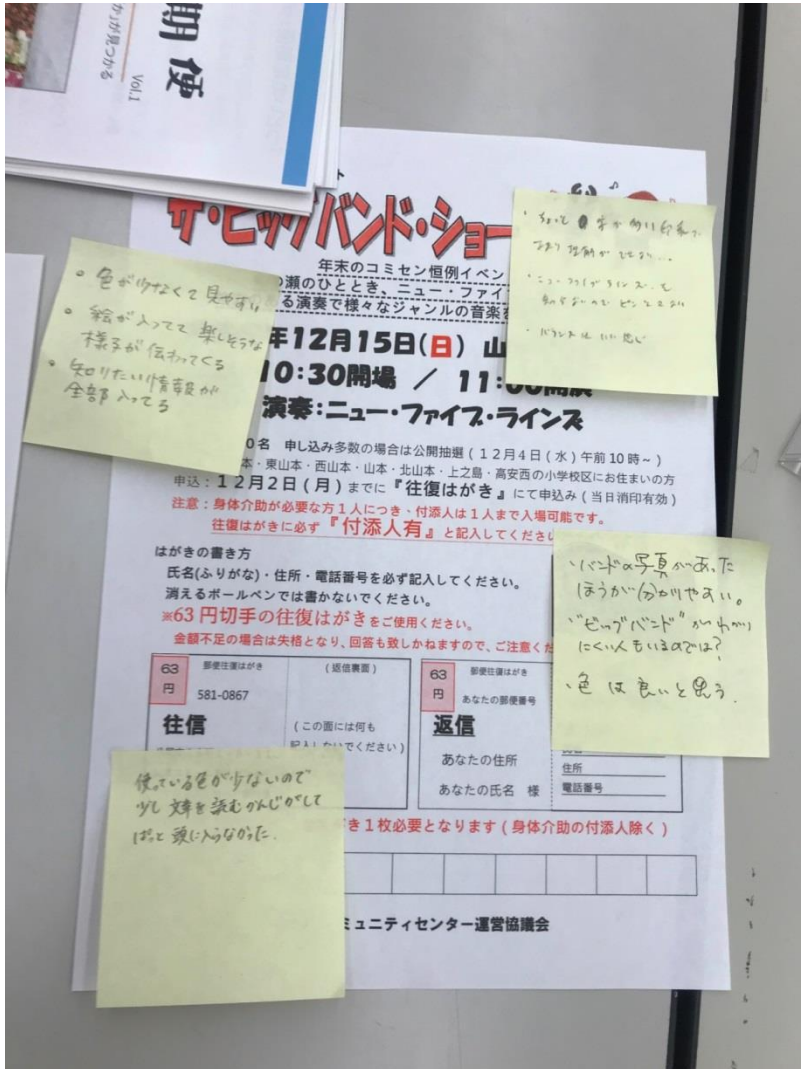 期便
Vol.1
かっが見つかる
ザ・ビッグバンド・ショー
年末のコミセン恒例イベン
の瀬のひととき、ニュー・ファイ
る演奏で様々なジャンルの音楽を
年12月15日(日) 山
10:30開場 / 11:00開演
演奏:ニュー・ファイブ・ラインズ
0名 申し込み多数の場合は公開抽選(12月4日(水)午前10時~)
本・東山本・西山本・山本・北山本・上之島・高安西の小学校区にお住まいの方
申込:12月2日(月)までに『往復はがき』にて申込み(当日消印有効)
注意:身体介助が必要な方1人につき、付添人は1人まで入場可能です。
往復はがきに必ず『付添人有』と記入してください
はがきの書き方
氏名(ふりがな)・住所・電話番号を必ず記入してください。
消えるボールペンでは書かないでください。
※63円切手の往復はがきをご使用ください。
金額不足の場合は失格となり、回答も致しかねますので、ご注意くだ
63
円
郵便往復はがき
581-0867
往信
(返信裏面)
(この面には何も
記入しないでください)
63
円
郵便往復はがき
あなたの郵便番号
返信
あなたの住所
あなたの氏名 様
住所
電話番号
き1枚必要となります(身体介助の付添人除く)
ミュニティセンター運営協議会
• 色が少なくて見やすい
• 絵が入ってて楽しそうな
様子が伝わってくる
• 知りたい情報が
全部入ってる
・ニュー・ファイブラインズを
知らないのでピンとこない
・バランスはいい感じ
・バンドの写真があった
ほうが分かりやすい。
・"ビッグバンド"がわかり
にくい人もいるのでは?
・色は良いと思う.
使っている色が少ないので
少し文章を読むかんじがして
ぱっと頭に入らなかった.